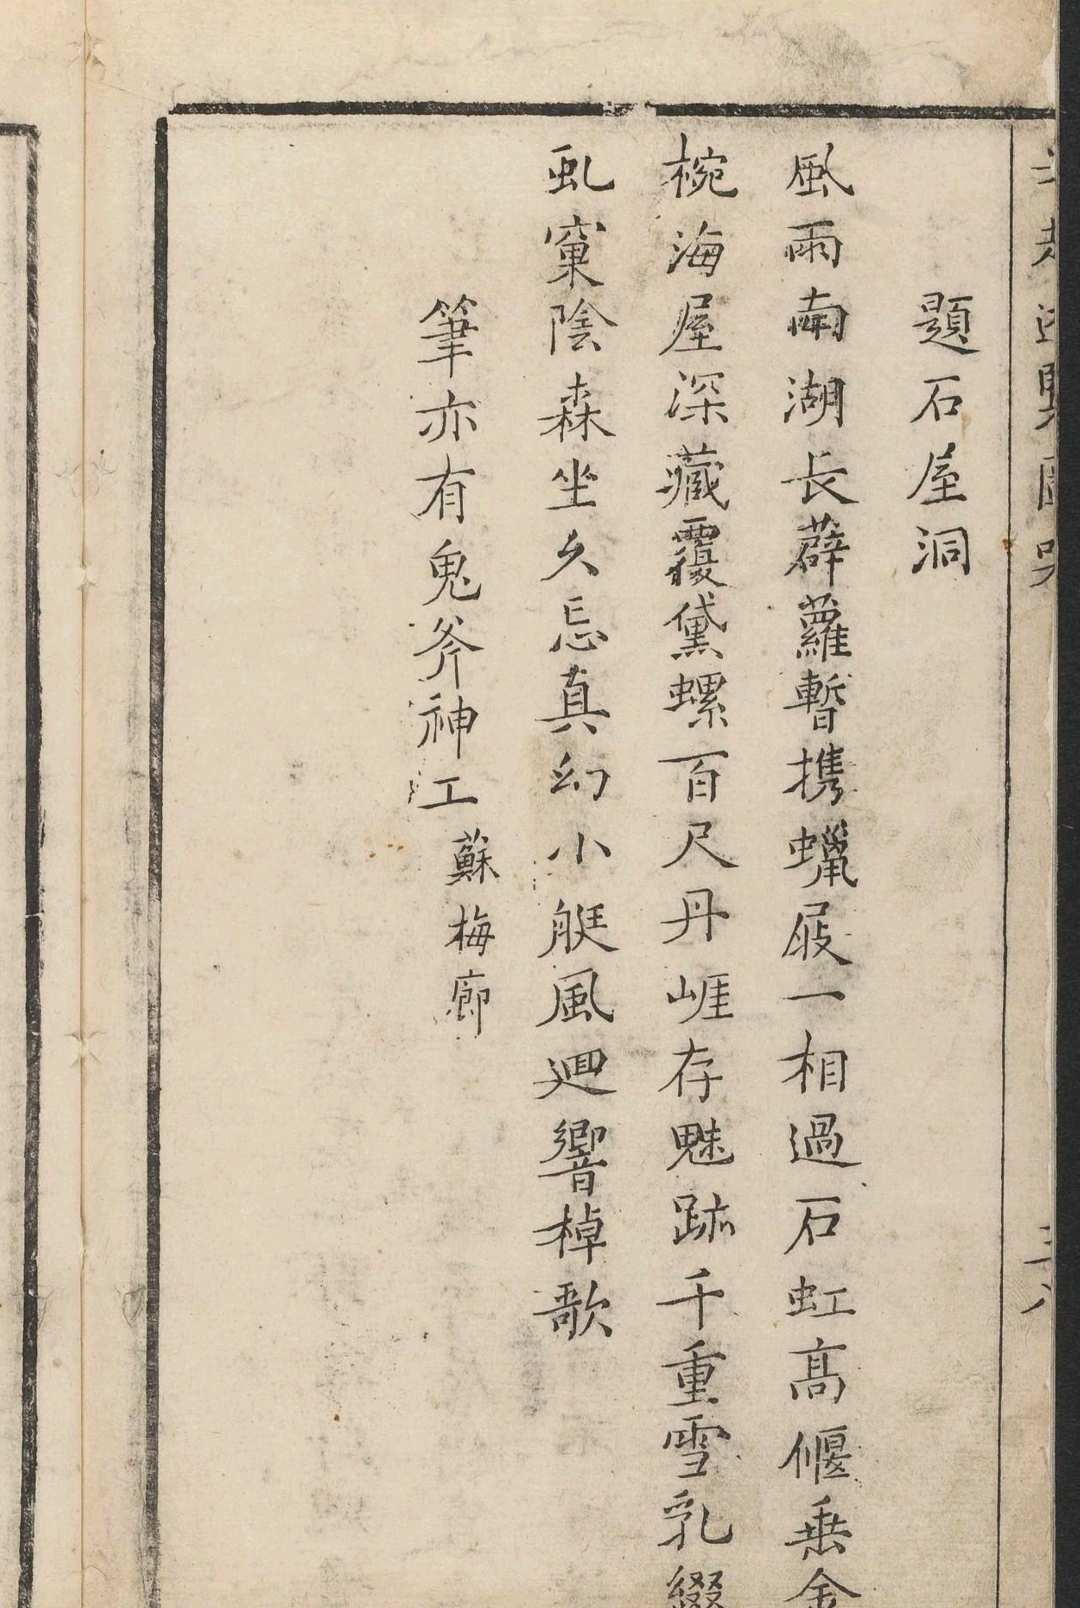 題石屋洞
風雨南湖長薜蘿暫携蠟屐一相過石虹高偃垂金
椀海屋深藏覆黛螺百尺丹崕存魅跡千重雪乳綴
虬窠陰森坐久忘真幻小艇風廻響棹歌
筆亦有鬼斧神工
蘇梅廊